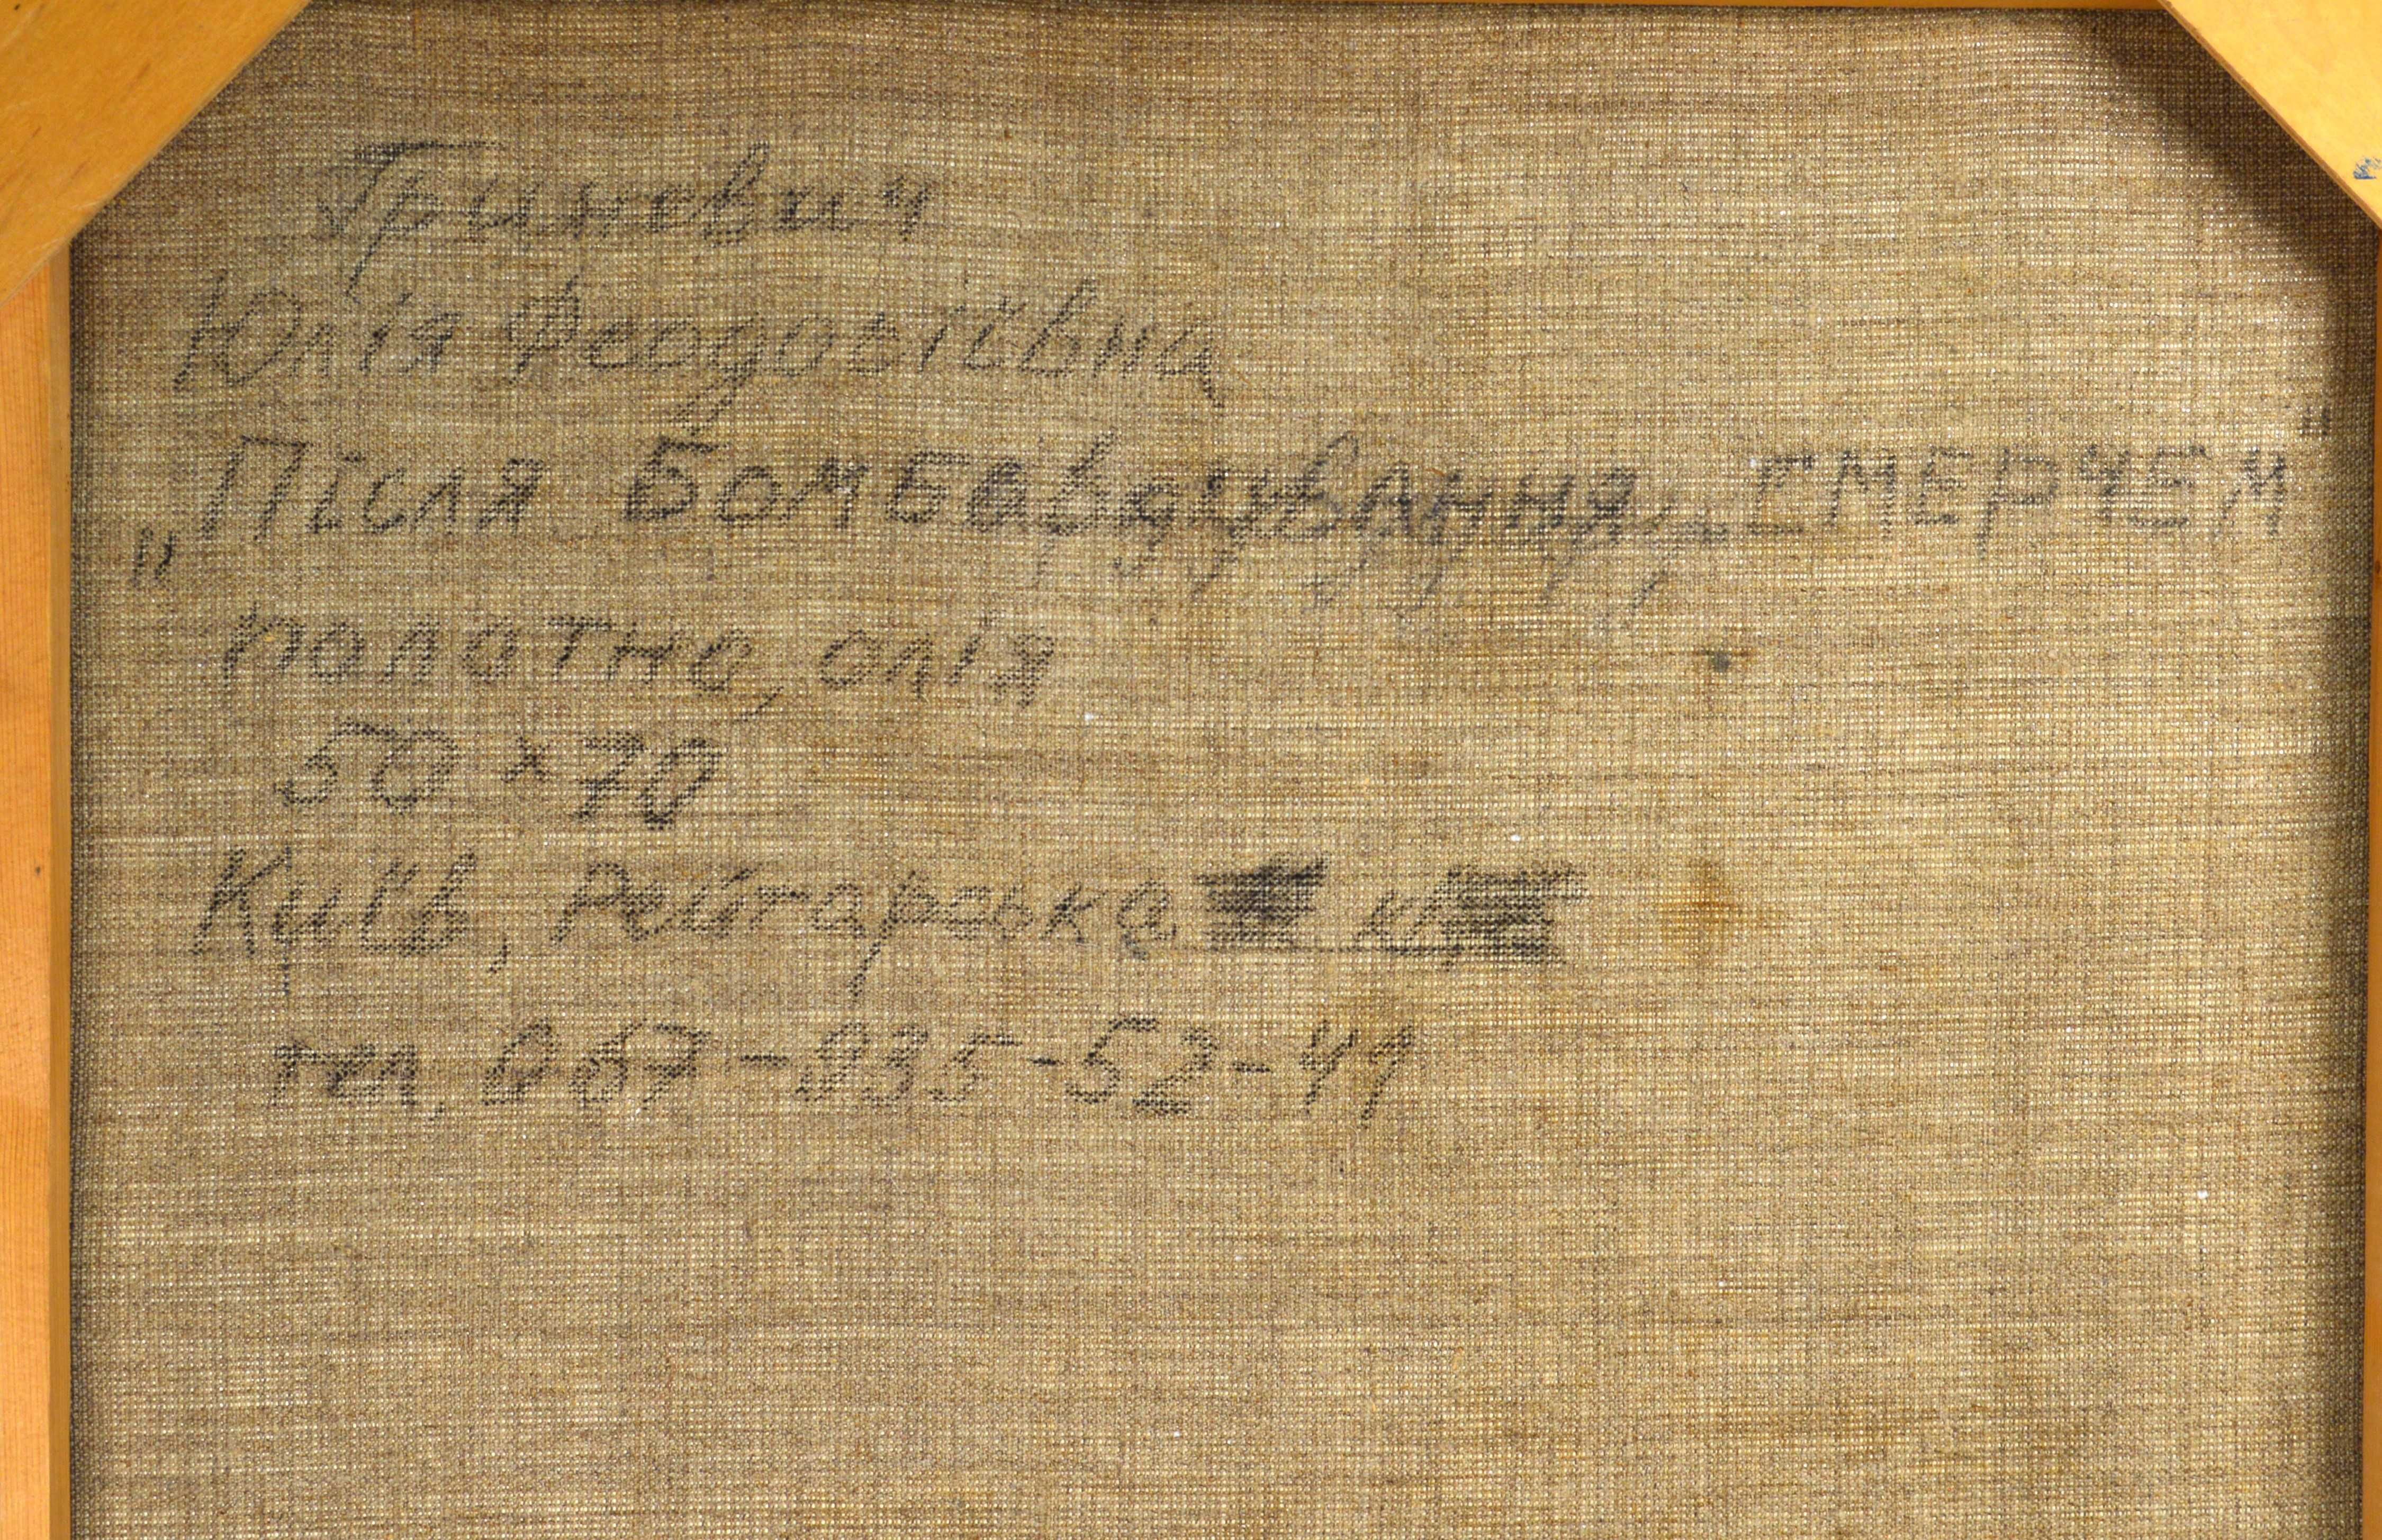 Гриневич
Юлія Феодосіївна
„Після Бомбардування „СМЕРЧЕМ"
полотно, олія
50 х 70
Київ, Рейтарська кв
тел. 067-835-52-41